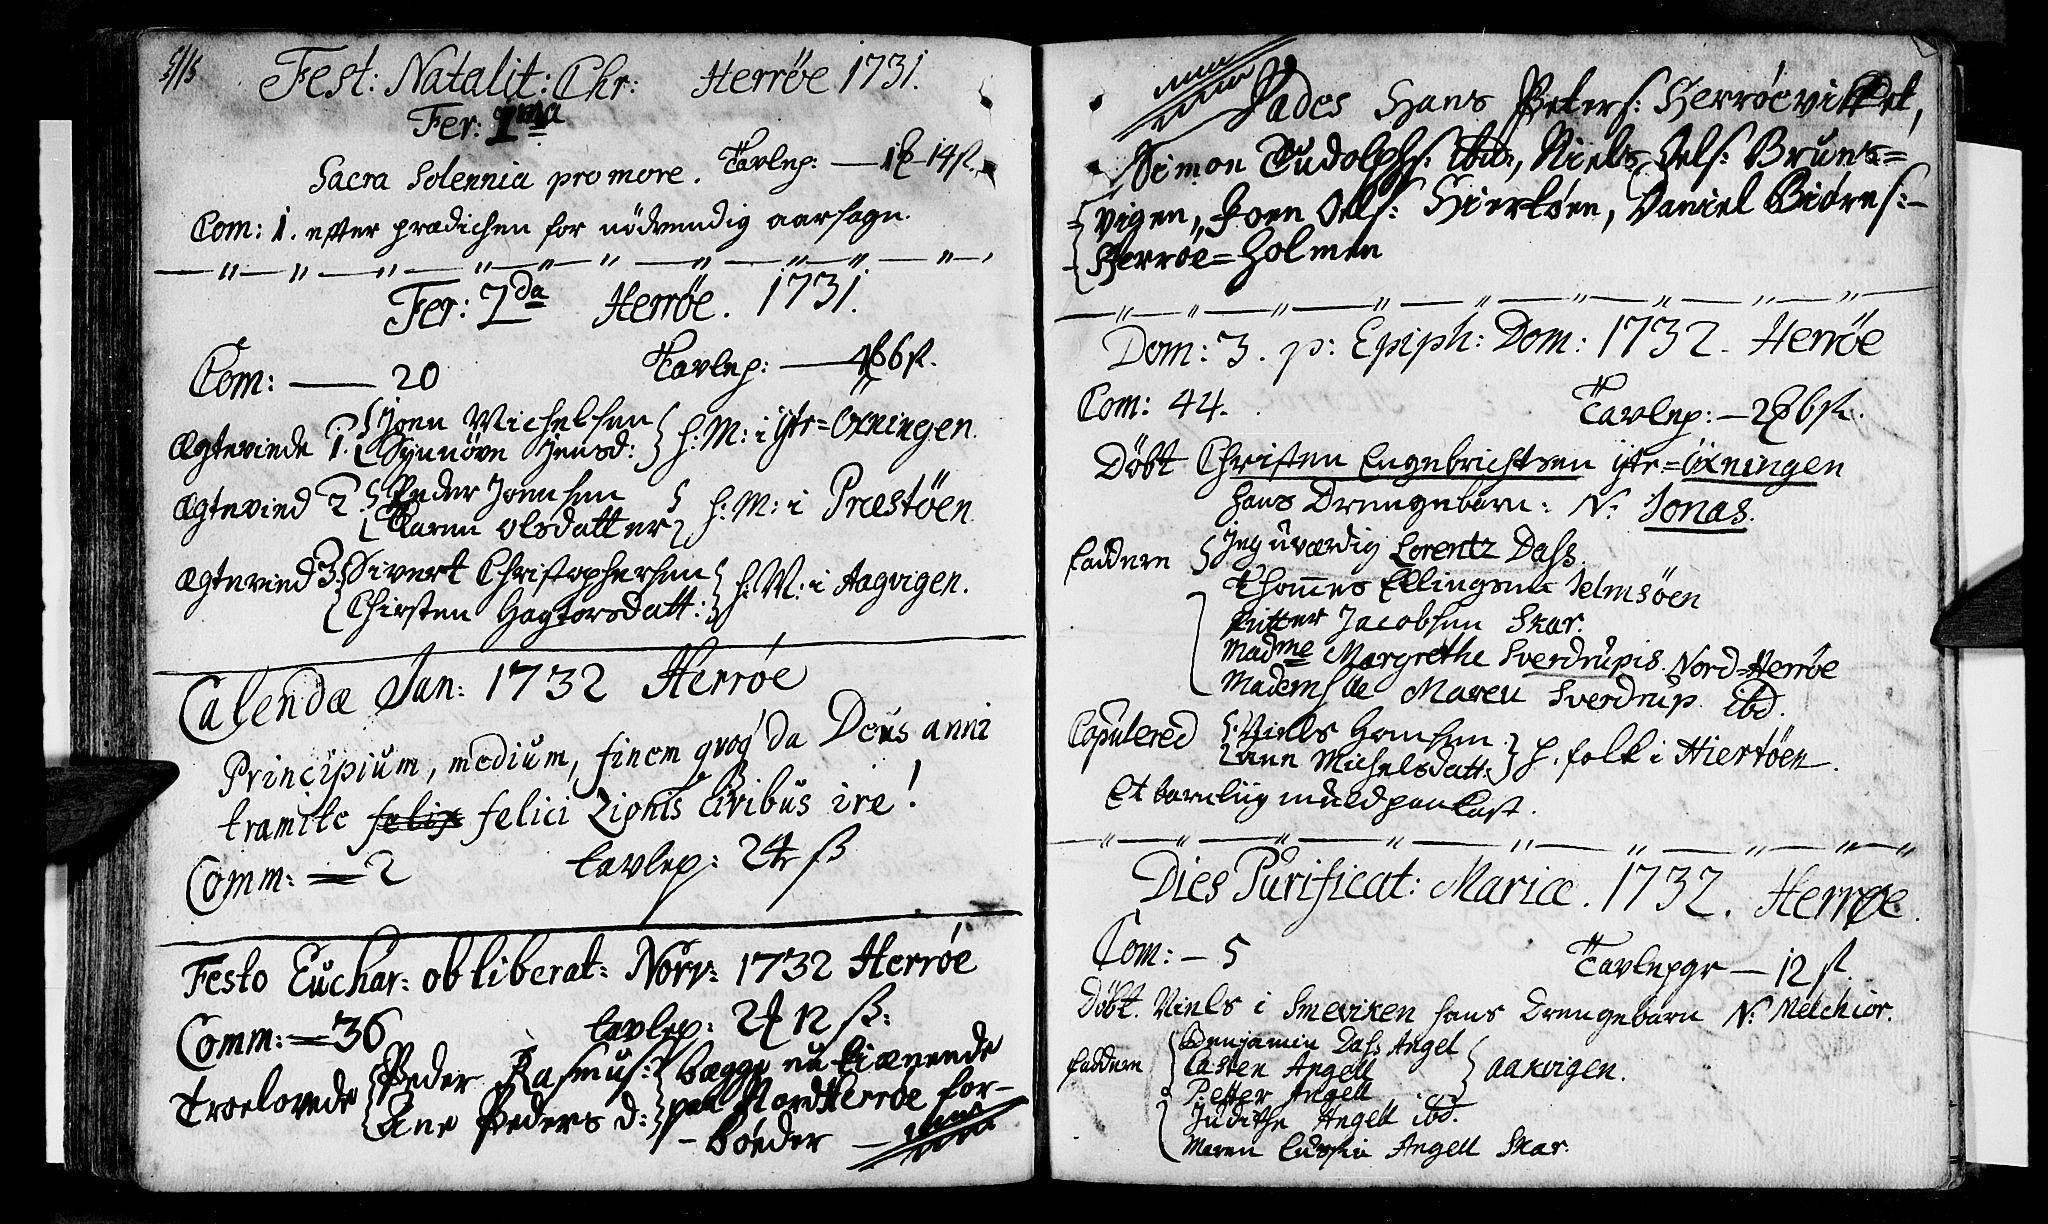 Fest: Natalit: Chr: Herrøe 1731.
Fer: 1ma
Sacra Solennia pro more. Tavlep: — 14 ß.
Com: 1. efter prædichen for nödvendig aarsagn.
Fer: 2da Herrøe. 1731.
Com: — 20 Tavlep: — 6 ß.
Ægteviede 1. Joen Michelsen
Synnöve Jensd: h: M: i Ytr=Oxningen.
Ægtevied 2. Peder Joensen
Karen Olsdatter h: M: i Præstöen.
Ægtevied 3. Sivert Christophersen
Chirsten Hagtorsdatt: h: M: i Aagvigen.
Calendæ Jan: 1732 Herrøe
Principium, medium, finem qvoq da Deus anni
tramite felix felici Zionis Civibus ire!
Comm: = 2 tavlep: 24 ß
Festo Euchar: ob liberat: Norv: 1732 Herrøe
Comm: = 36 tavlep: 2 12 ß:
Troelovede Peder Rasmus: begge nu tienende
Ane Peders d: paa Nord Herrøe for-
- böeder —
Hans Peters: Herröevikket,
Simon Tudolphs: ibid:, Niels Oels: Bruns=
vigen, Joen Oels: Hiertöen, Daniel Biörns:
Herröe=Holmen
Dom: 3. p: Epiph: Dom: 1732. Herröe
Com: 44. Tavlep: — 2 6 ß.
Döbt Christen Engebrichtsen ytr=Öxningen
hans Drengebarn: N: Jonas.
faddere Jeg uværdig Lorentz Dass.
Thomes Ellingsen Selmsöen
Pitter Jacobsen Skar.
Madme Margrethe Sverdrupis. Nord=Herröe
Mademslle Maren Sverdrup. ibd.
Copulered Niels Hansen
ann Michelsdatt: h. folk i Hiertöen.
Et barneliig muld paa Cast.
Dies Purificat: Mariæ. 1732. Herrøe.
Com: — 5 Tavlepgr — 12 ß.
Döbt. Niels i Smeviken hans Drengebarn N: Melchior.
faddere Benjamin Dass Angel
Casten Angell aakvigen.
Petter Angell
Judithe Angell ibd.
Maren Angell Skar.